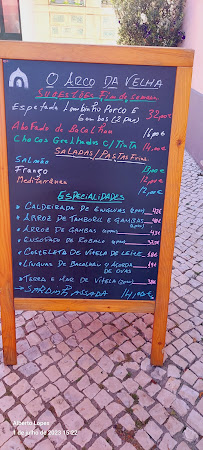 O ARCO DA VELHA
SUGESTÕES Fim de semana
Espetada Lombinho Porco E
Gambas (2 pax) 32,00€
Abafado do Bacalhau 16,00€
Chocos Grelhados c/Tinta 14,00€
SALADAS / PASTAS Frias
SALMÃO
Frango
Mediterrânea 12,00€
ESPECIALIDADES
CALDEIRADA DE ENGUIAS
ARROZ DE TAMBORIL E GAMBAS
ARROZ DE GAMBAS
ENSOPADO DE ROBALO
COSTELETA DE VITELA DE LEITE
LÍNGUAS DE BACALHAU C/ AÇORDA
DE OVAS
TERRA E MAR DE VITELA
SARDINHA ASSADA 14,00€
Alberto Lopes
1 de julho de 2023 15:22